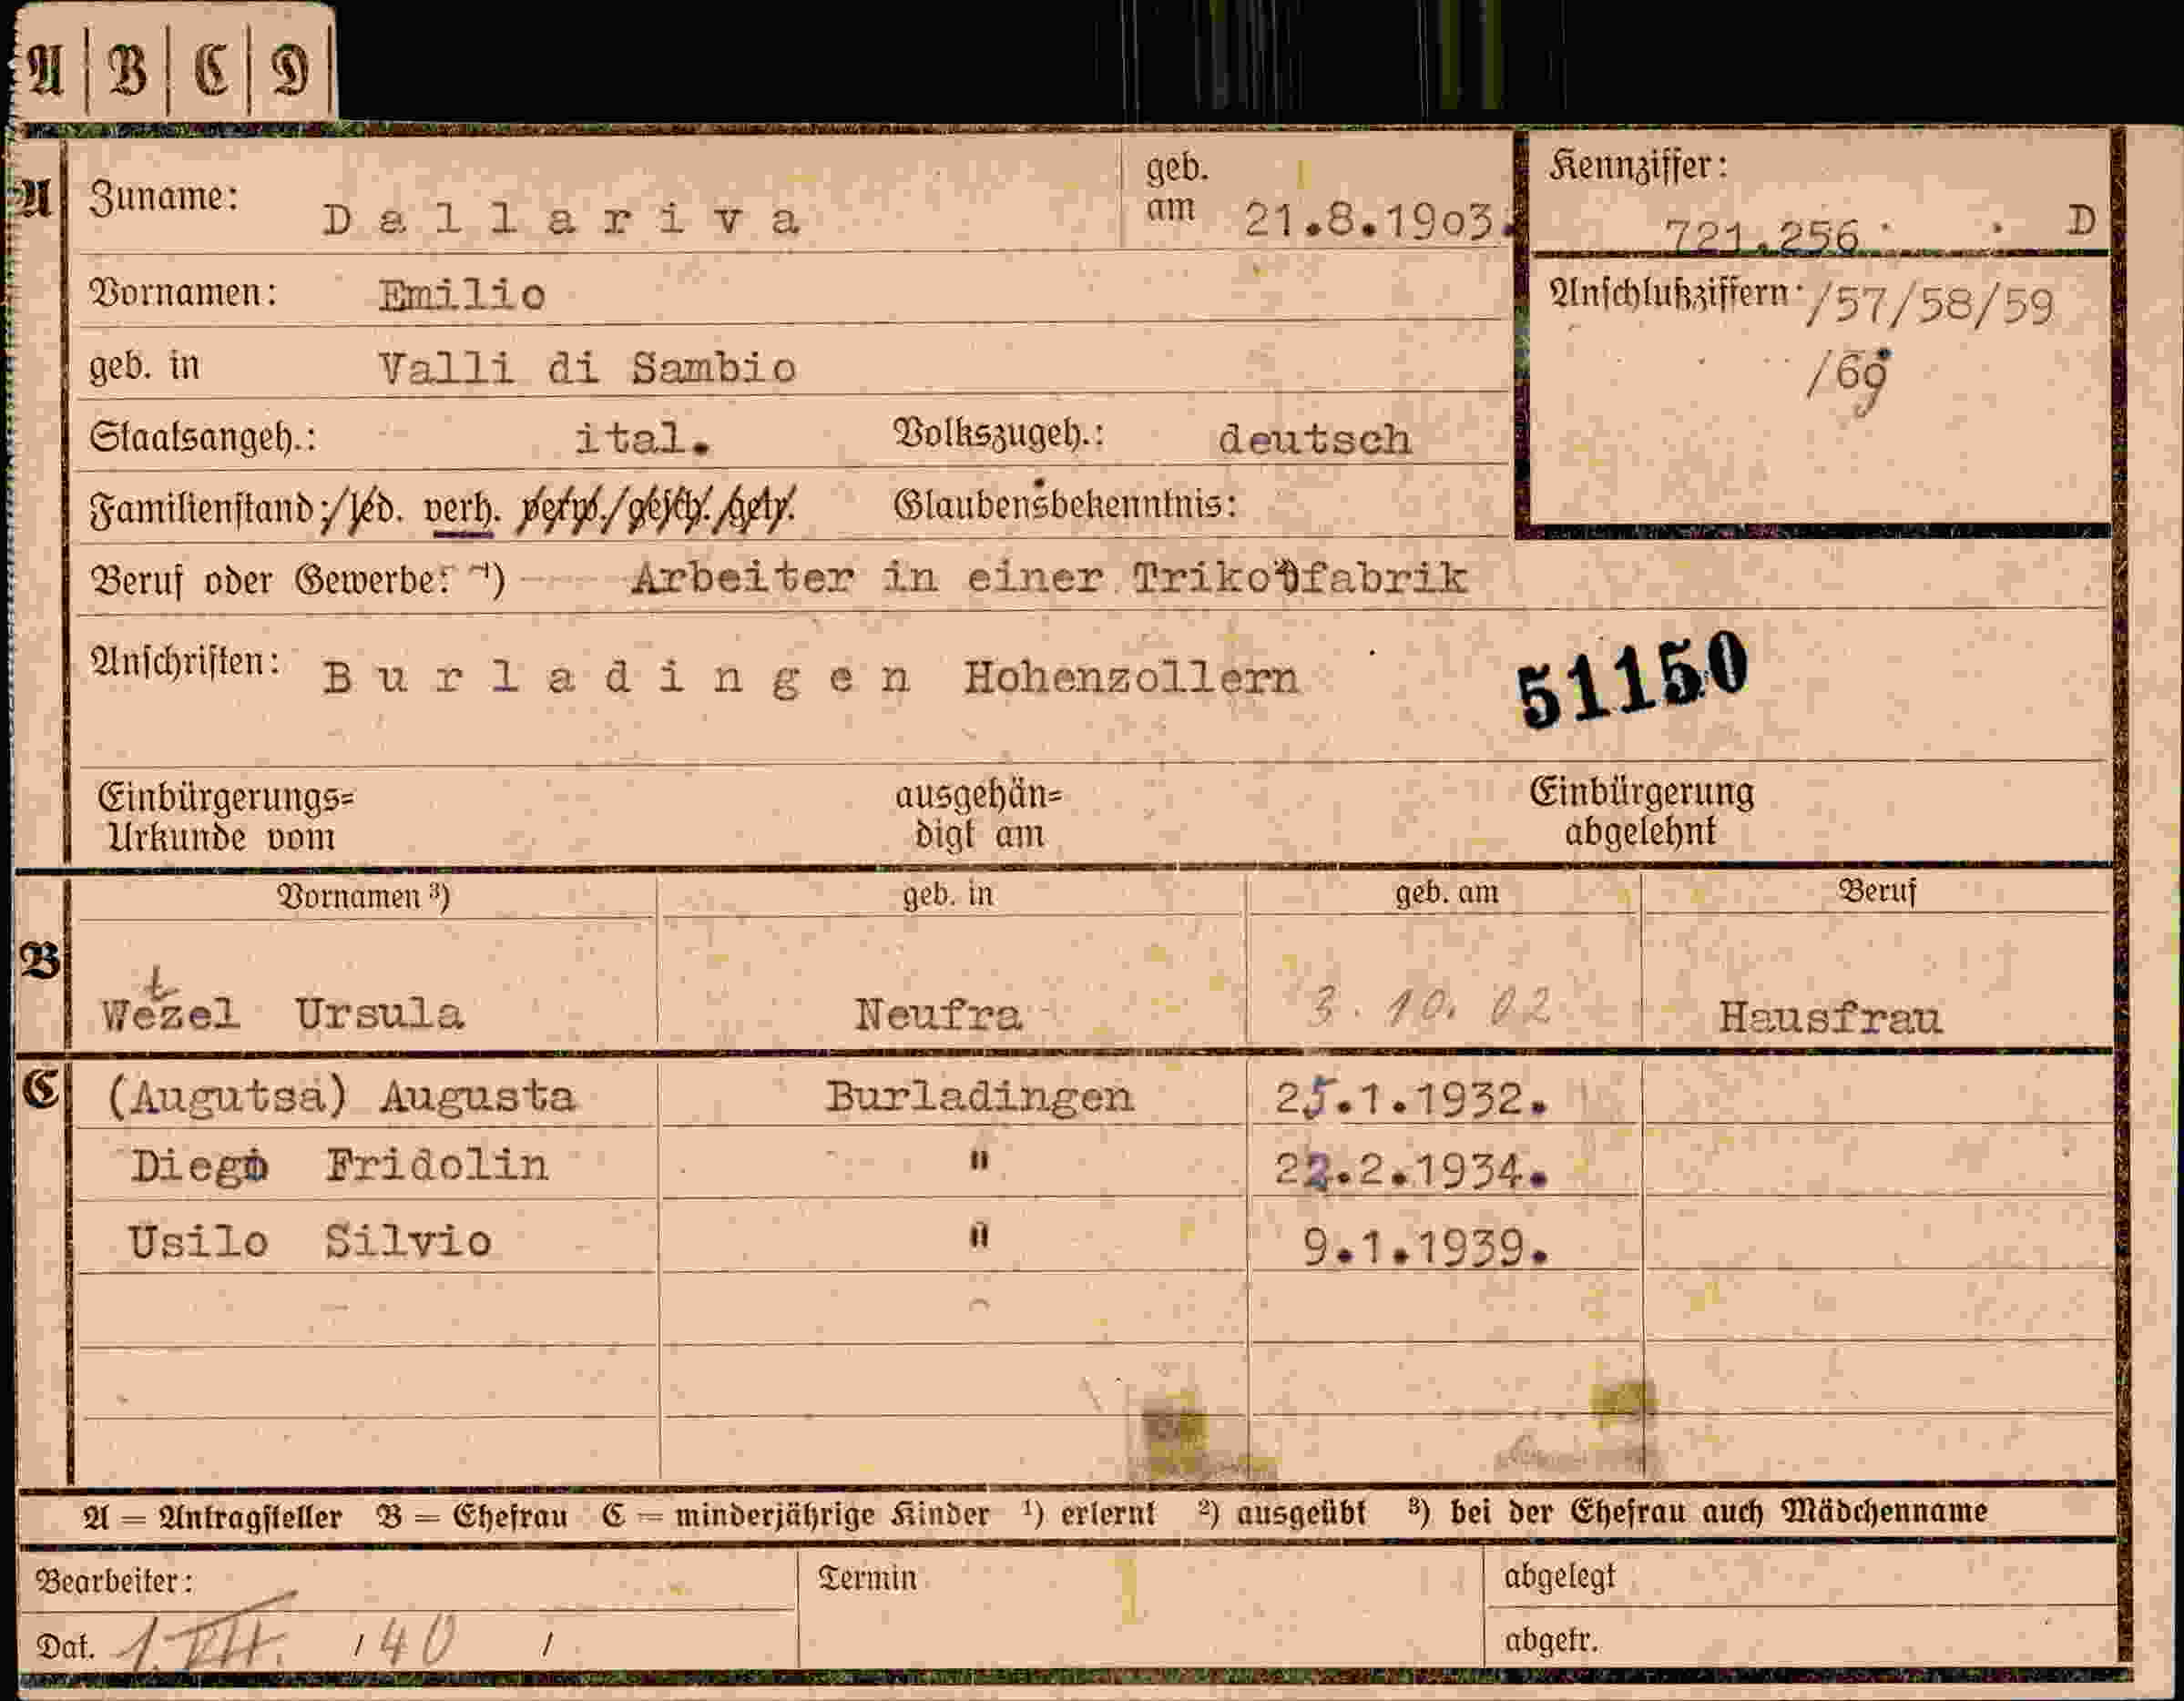 A | B | C | D |
A Zuname: Dallariva geb. am 21.8.1903. Kennziffer: 721.256 D
Vornamen: Emilio Anschlußziffern /57/58/59
geb. in Valli di Sambio /69
Staatsangeh.: ital. Volkszugeh.: deutsch
Familienstand: led. verh. verw. gesch. getr. Glaubensbekenntnis:
Beruf oder Gewerbe: ¹) Arbeiter in einer Trikotfabrik
Anschriften: Burladingen Hohenzollern 51150
Einbürgerungs= ausgehän= Einbürgerung
Urkunde vom digt am abgelehnt
Vornamen ³) geb. in geb. am Beruf
B
t
Wezel Ursula Neufra 3. 10. 02 Hausfrau
C (Augutsa) Augusta Burladingen 25.1.1932.
Diego Fridolin " 22.2.1934.
Usilo Silvio " 9.1.1939.
A = Antragsteller B = Ehefrau C = minderjährige Kinder ¹) erlernt ²) ausgeübt ³) bei der Ehefrau auch Mädchenname
Bearbeiter: Termin abgelegt
Dat. / 40 / abgetr.